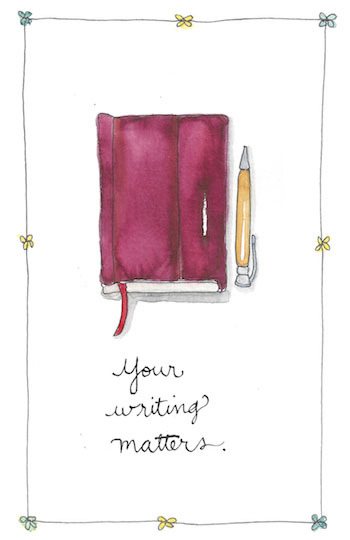 Your
writing
matters.